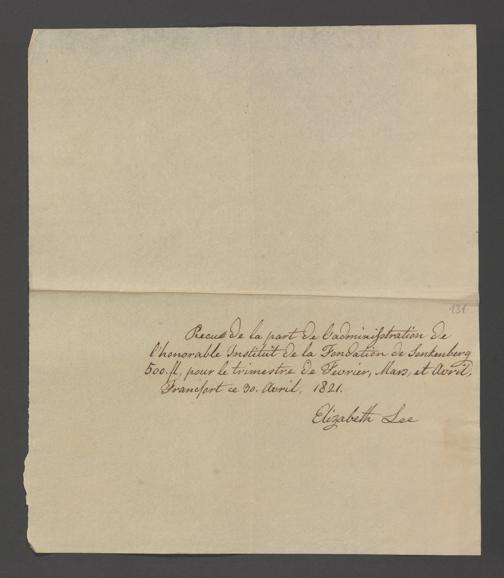 131
Recue de la part de l'administration de
l'honorable Institut de la Fondation de Senkenberg
500. fl, pour le trimestre de Fevrier, Mars, et Avril,
Francfort ce 30. Avril, 1821.
Elizabeth Lee